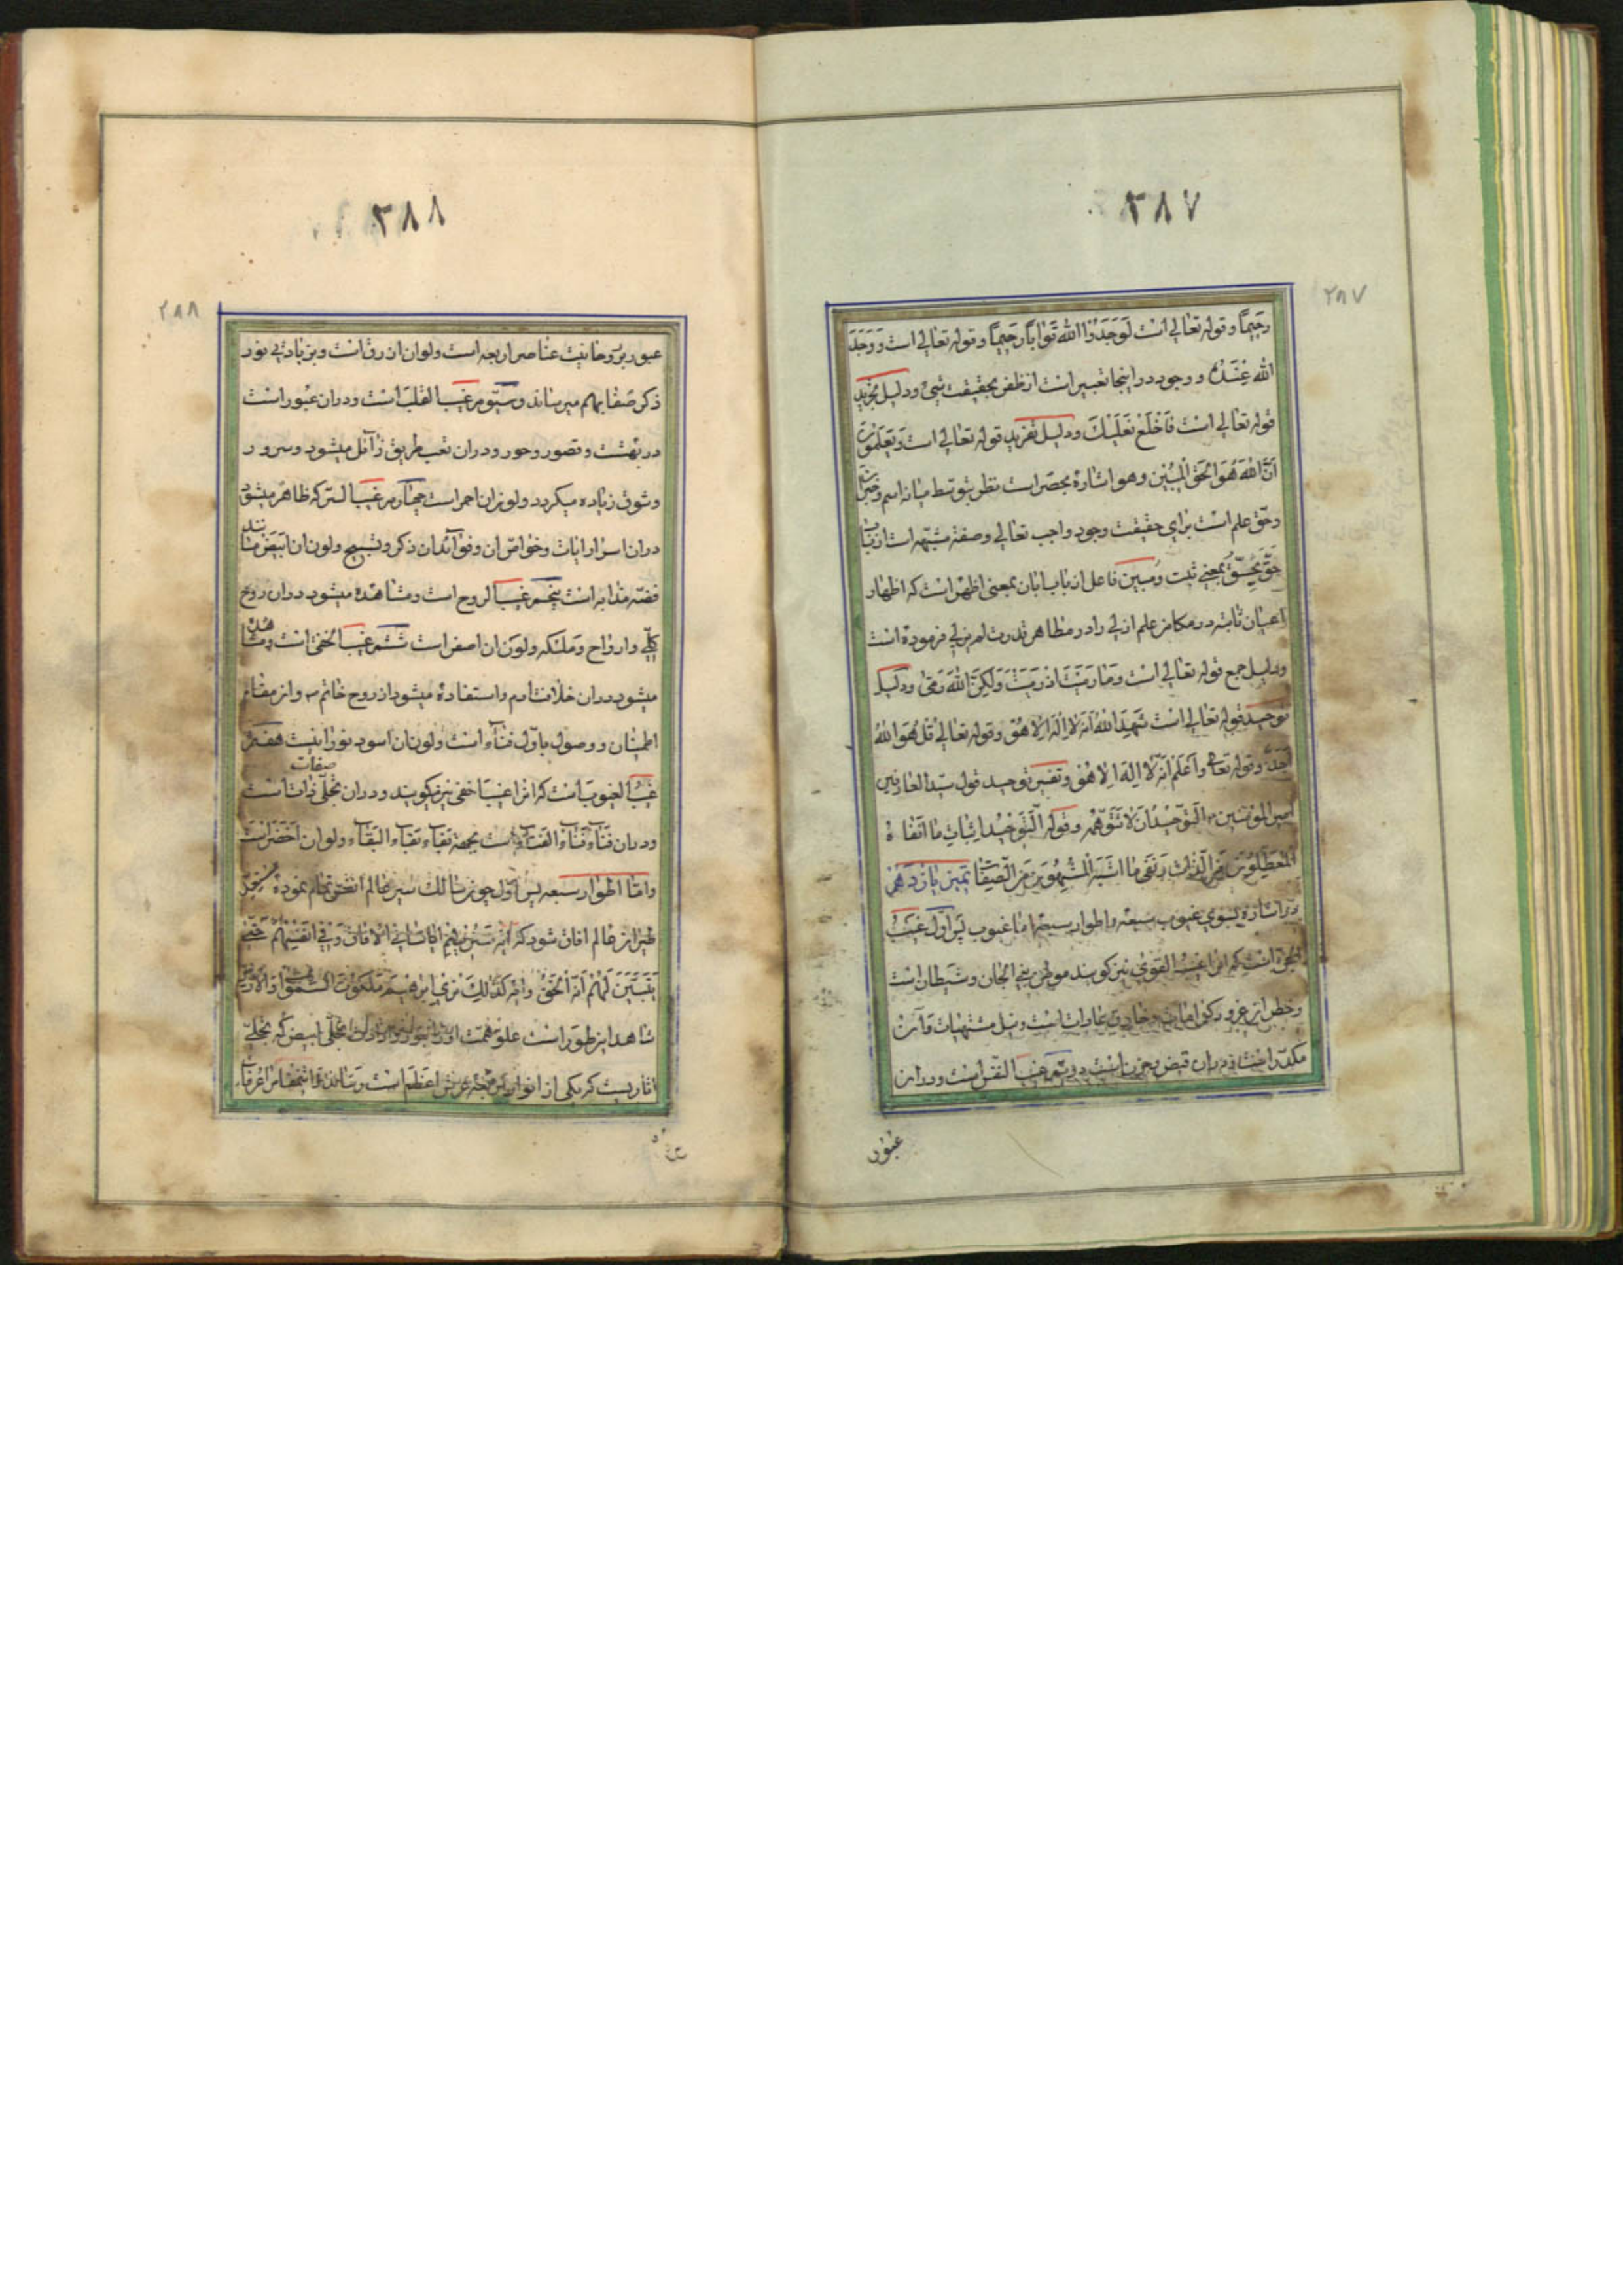 ٢٨٧
٢٨٧
رَحِيمًا و قوله تعالى است لَوَجَدُوا اللهَ تَوّابًا رَحِيمًا و قوله تعالى است وَوَجَدَ
الله عِنْدَهُ و وجود در اينجا تعبير است از ظفر بحقيقت شىء و دليل تجريد
قوله تعالى است فَاخْلَعْ نَعْلَيْكَ و دليل تفريد قوله تعالى است وَيَعْلَمُونَ
اَنَّ اللهَ هُوَ الْحَقُّ الْمُبِينُ و هو اشاره بحصر است نظر بتوسط ميانه اسم و خبر
و حقّ علم است براى حقيقت وجود واجب تعالى و صفة مشبّهه است از باب
حَقَّ يَحِقُّ بمعنى ثبت و مُبين فاعل از باب ابان بمعنى اظهر است كه اظهار
اعيان ثابته در مكامن علم ازلى را در مظاهر قدرت لم يزلى فرموده است
و دليل جمع قوله تعالى است وَمَا رَمَيْتَ اِذْ رَمَيْتَ وَلكِنَّ اللهَ رَمى و دليل
توحيد قوله تعالى است شَهِدَ اللهُ اَنَّهُ لا اِلهَ اِلا هُوَ و قوله تعالى قُلْ هُوَ اللهُ
اَحَدٌ و قوله تعالى وَاعْلَمْ اَنَّهُ لا اِلهَ اِلا هُوَ و تفسير توحيد قول سيد العارفين
امير المؤمنين ٣ اَلتَّوْحِيدُ اَنْ لا تَتَوَهَّمَهُ و قوله اَلتَّوْحِيدُ اِثباتِ ما اَنْفاهُ
الْمُعَطِّلُونَ مِنَ الذّاتِ وَ نَفْىِ ما اَثْبَتَهُ الْمُشَبِّهُونَ مِنَ الصِّفاتِ تميز يازدهم
در اشاره بسوى غيوب سبعه و اطوار سبعه امّا غيوب پس اوّل غيب
است كه انرا غيب القوى نيز گويند موطن بنى الجان و شيطان است
و خطر از غرور و كفر است و نيل مشتهيات و آن
مكدّر است و در ان قبض و حزن است دويّم غيب النفس است و در ان
عبور
٢٨٨
٢٨٨
عبور بر روحانيت عناصر اربعه است و لون ان ازرق است و بزيادتى نور
ذكر صفا بهم ميرساند و سيّوم غيب القلب است و در ان عبور است
در بهشت و قصور و حور و در ان تعب طريق زائل ميشود و سرور
و شوق زياده ميگردد و لون ان احمر است چهارم غيب السّر كه ظاهر ميشود
در ان اسرار ايات و خواصّ ان و فوائد ان ذكر و تسبيح و لون ان ابيض مانند
فضّه مذابه است پنجم غيب الروح است و مشاهده ميشود در ان روح
كلّى و ارواح و ملئكه و لون ان اصفر است ششم غيب الخفى است و مشاهده
ميشود در ان خلافت ادم و استفاده ميشود از روح خاتم ٣ و اين مقام
اطمينان و وصول باوّل فناء است و لون ان اسود نورانيت هفتم
صفات
غيب الغيوب است كه انرا غيب اخفى نيز ميگويند و در ان تجلّى ذات است
و در ان فناء فناء الفناء است بجهة بقاء بقاء البقاء و لون ان اخضر است
و امّا اطوار سبعه پس اوّل چون سالك سير عالم انفس تمام نموده
طيران عالم افاق شود كه آية سَنُرِيهِمْ اياتنا فى الافاق وَفى اَنْفُسِهِمْ حَتّى
يَتَبَيَّنَ لَهُمْ اَنَّهُ الْحَقُّ و اية كَذلِكَ نُرِى اِبْرهيمَ مَلَكُوتَ السَّمواتِ وَالاَرضِ
شاهد اين طور است علوّ همّت او را بتجلّى ابيض كه تجلّى
اثاريست كه يكى از انوار اربعه عرش اعظم است رساند